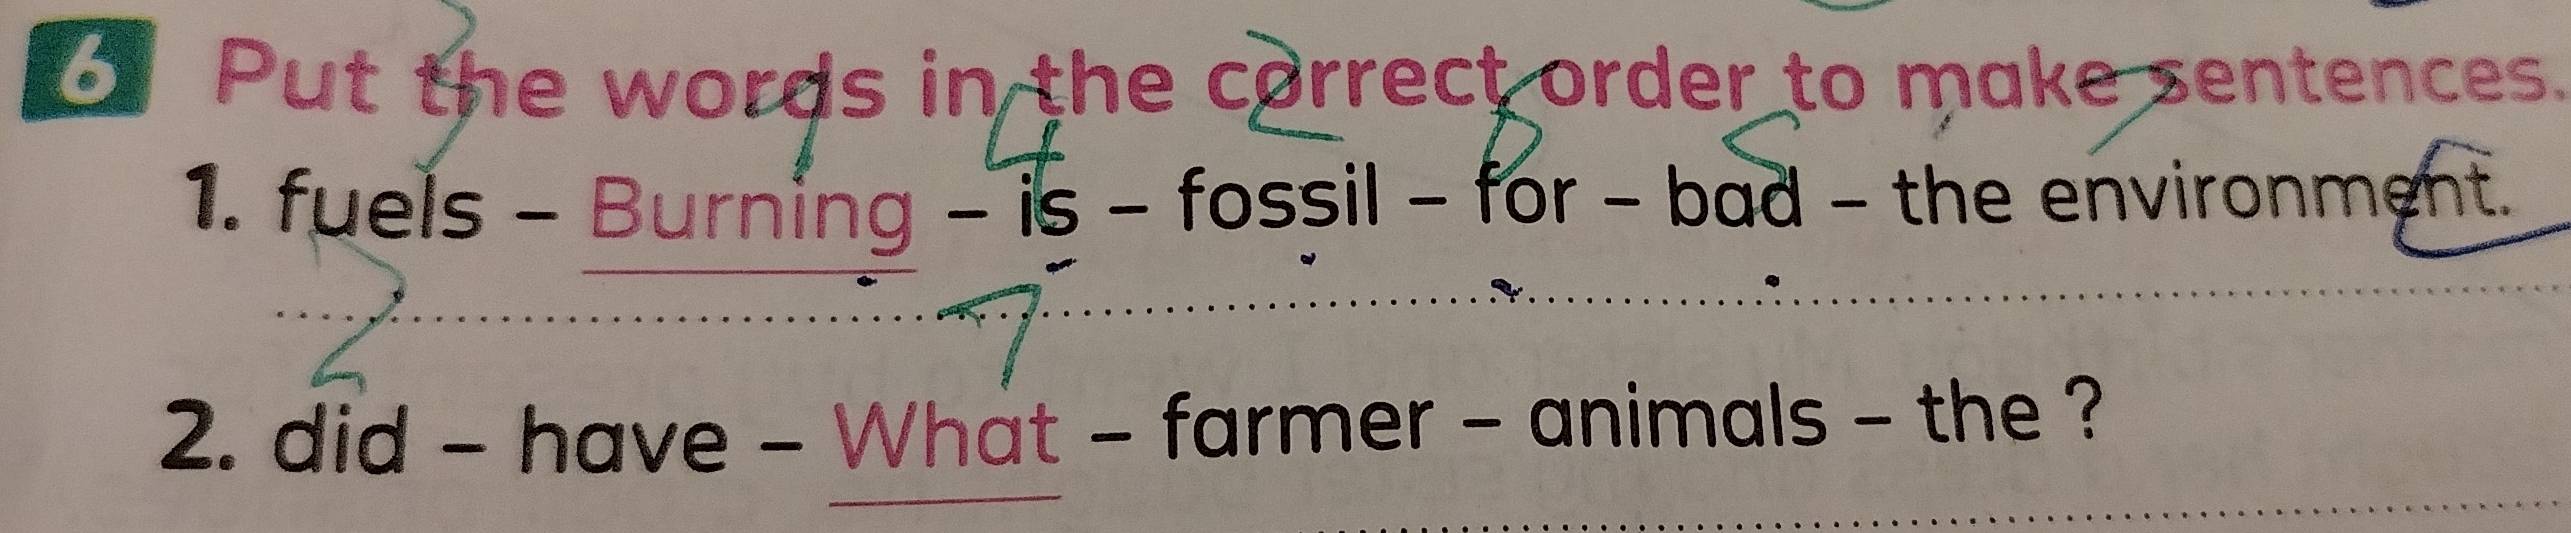 6 Put the words in the correct order to make sentences.
3 1 4 2 6 5 7
1. fuels - Burning - is - fossil - for - bad - the environment.
2 1
2. did - have - What - farmer - animals - the ?